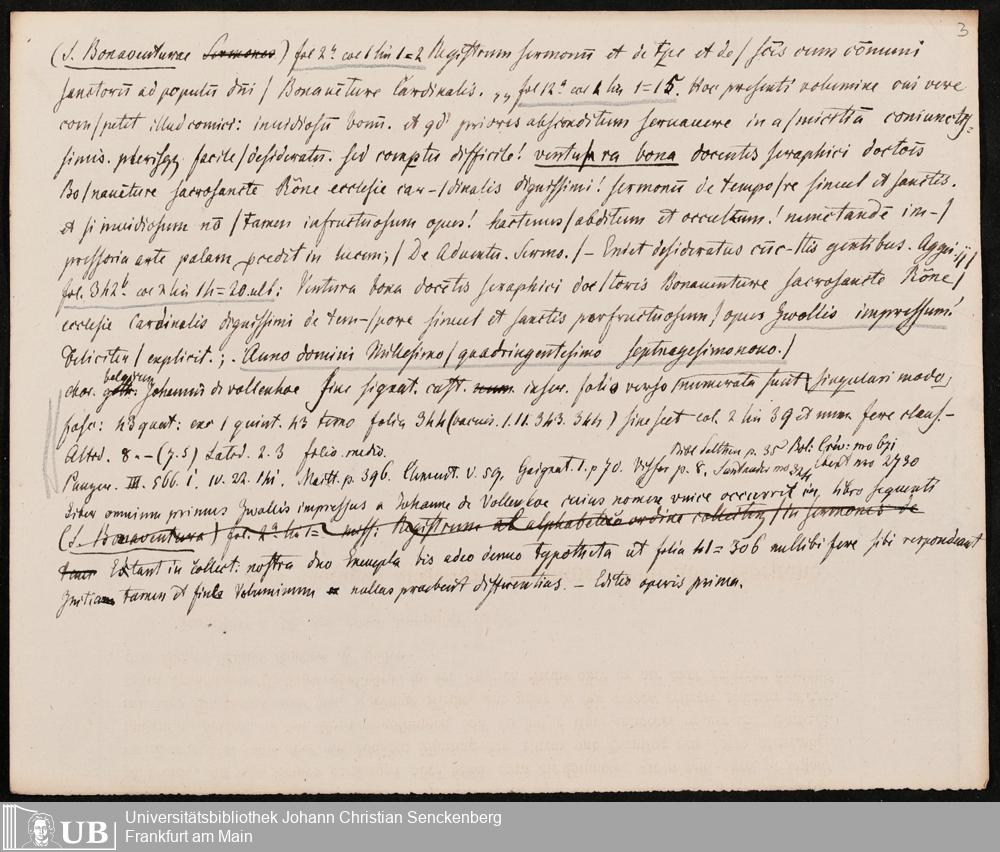 3
(S. Bonaventurae Sermones) fol 2ᵃ col 1 lin 1=2 Registrum sermonū et de tp̄e et de / scīs cum cōmuni
sanctorū ad populū dn̄i / Bonauēture Cardinalis. „ fol 12ᵃ col 1 lin 1=15. Hoc presenti volumine oui vere
com/petit illud comici: inuidiosū bonū. et qd' priores absconditum seruauere in a/micitia coniunctis=
simis. pleris qz facile / desideratu. sed comptu difficile! ventura bona docentis seraphici doctoīs
Bo/nauēture sacrosancte Rōne ecclesie car-/dinalis dignissimi! sermonū de tempo/re simul et sanctis.
et si inuidiosum nō / tamen infructuosum opus! hactenus / abditum et occultum! nunc tandē im-/
pressoria arte palam pcedit in lucem; / De Aduentu. Sermo. / – Eniet desideratus cūc-/tis gentibus. Aggei. ij /
fol. 342ᵇ col 2 lin 14=20. ult: Ventura bona docētis seraphici doc/toris Bonauenture sacrosancte Rōne /
ecclesie Cardinalis dignissimi de tem-/pore simul et sanctis perfructuosum / opus Zwollis impressum!
feliciter / explicit.; . Anno domini Millesimo / quadringentesimo septuagesimonono. /
char. goth: belgicum Johannis de vollenhoe sine signat. cust. num. infer. folio verso numerata sunt singulari modo;
fasc: 43 quat: exc 1 quint. 43 terno folia 344 (vacuis. 1. 11. 343. 344) sine sect col. 2 lin 39 et num. fere claus-
Altod. 8. – (7. 5) Latod. 2. 3 folio. medio. Bibl Selthen p. 35 Bol: Crév: no 671
Panzer. III. 566. 1. IV. 22. Ibi. Maitt. p. 396. Clement. V. 59. Gaignat. 1. p 70. Visser p. 8. Santander no 324 no 2730
liber omnium primus Zwollis impressus a Johanne de Vollenhoe cuius nomen unice occurrit in libro sequenti
(S. Bonaventura) fol. 2ᵃ lin 1= Registrum alphabetico ordine collectum / in sermones de
time Extant in collect: nostra duo Exempla bis adeo denuo typotheta ut folia 41=306 nullibi fere sibi respondeant
Initia tamen et fines Voluminum nullas praebent differentias. – Editio operis prima.
UB
Universitätsbibliothek Johann Christian Senckenberg
Frankfurt am Main